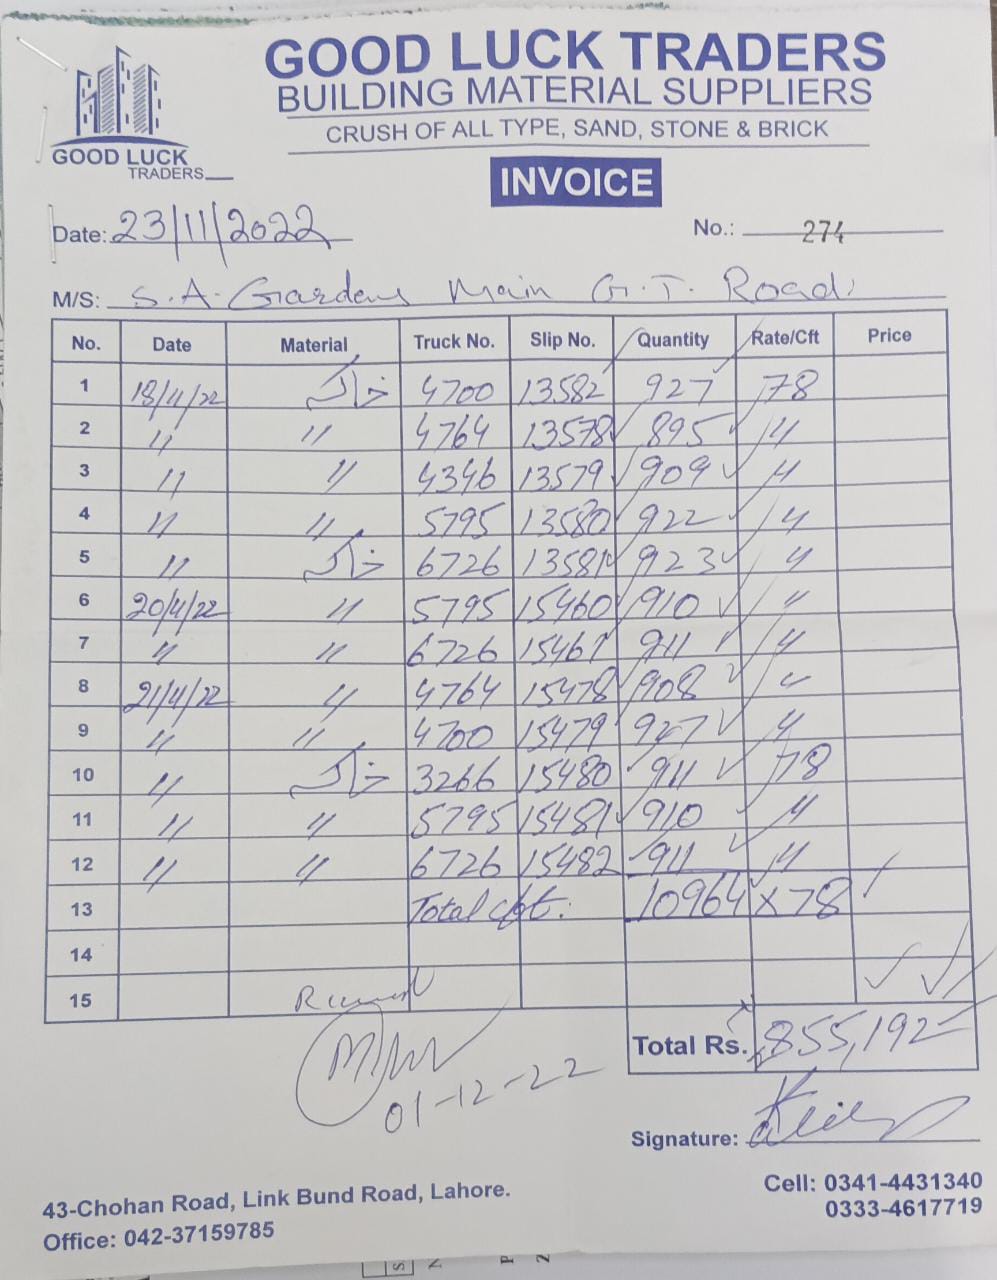 GOOD LUCK TRADERS
BUILDING MATERIAL SUPPLIERS
CRUSH OF ALL TYPE, SAND, STONE & BRICK
GOOD LUCK
TRADERS
INVOICE
Date: 23/11/2022 No.: 274
M/S: S.A. Gardens Main G.T. Road
No. Date Material Truck No. Slip No. Quantity Rate/Cft Price
1 18/4/22 خاکہ 4700 13582 927 78
2 〃 〃 4764 13578 895 〃
3 〃 〃 4346 13579 909 〃
4 〃 〃 5795 13580 922 〃
5 〃 خاکہ 6726 13581 923 〃
6 20/4/22 〃 5795 15460 910 〃
7 〃 〃 6726 15461 911 〃
8 21/4/22 〃 4764 15478 908 〃
9 〃 〃 4700 15479 927 〃
10 〃 خاکہ 3266 15480 911 78
11 〃 〃 5795 15481 910 〃
12 〃 〃 6726 15482 911 〃
13 Total cft: 10964 x 78
14
15
Received
Total Rs. 855,192
01-12-22
Signature:
43-Chohan Road, Link Bund Road, Lahore.
Office: 042-37159785
Cell: 0341-4431340
0333-4617719